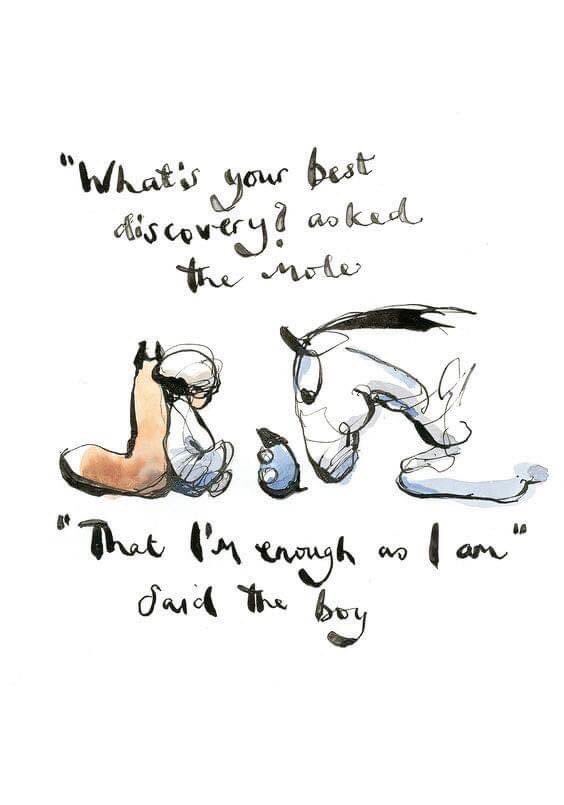 "What's your best
discovery? asked
the Mole
"That I'm enough as I am"
said the boy